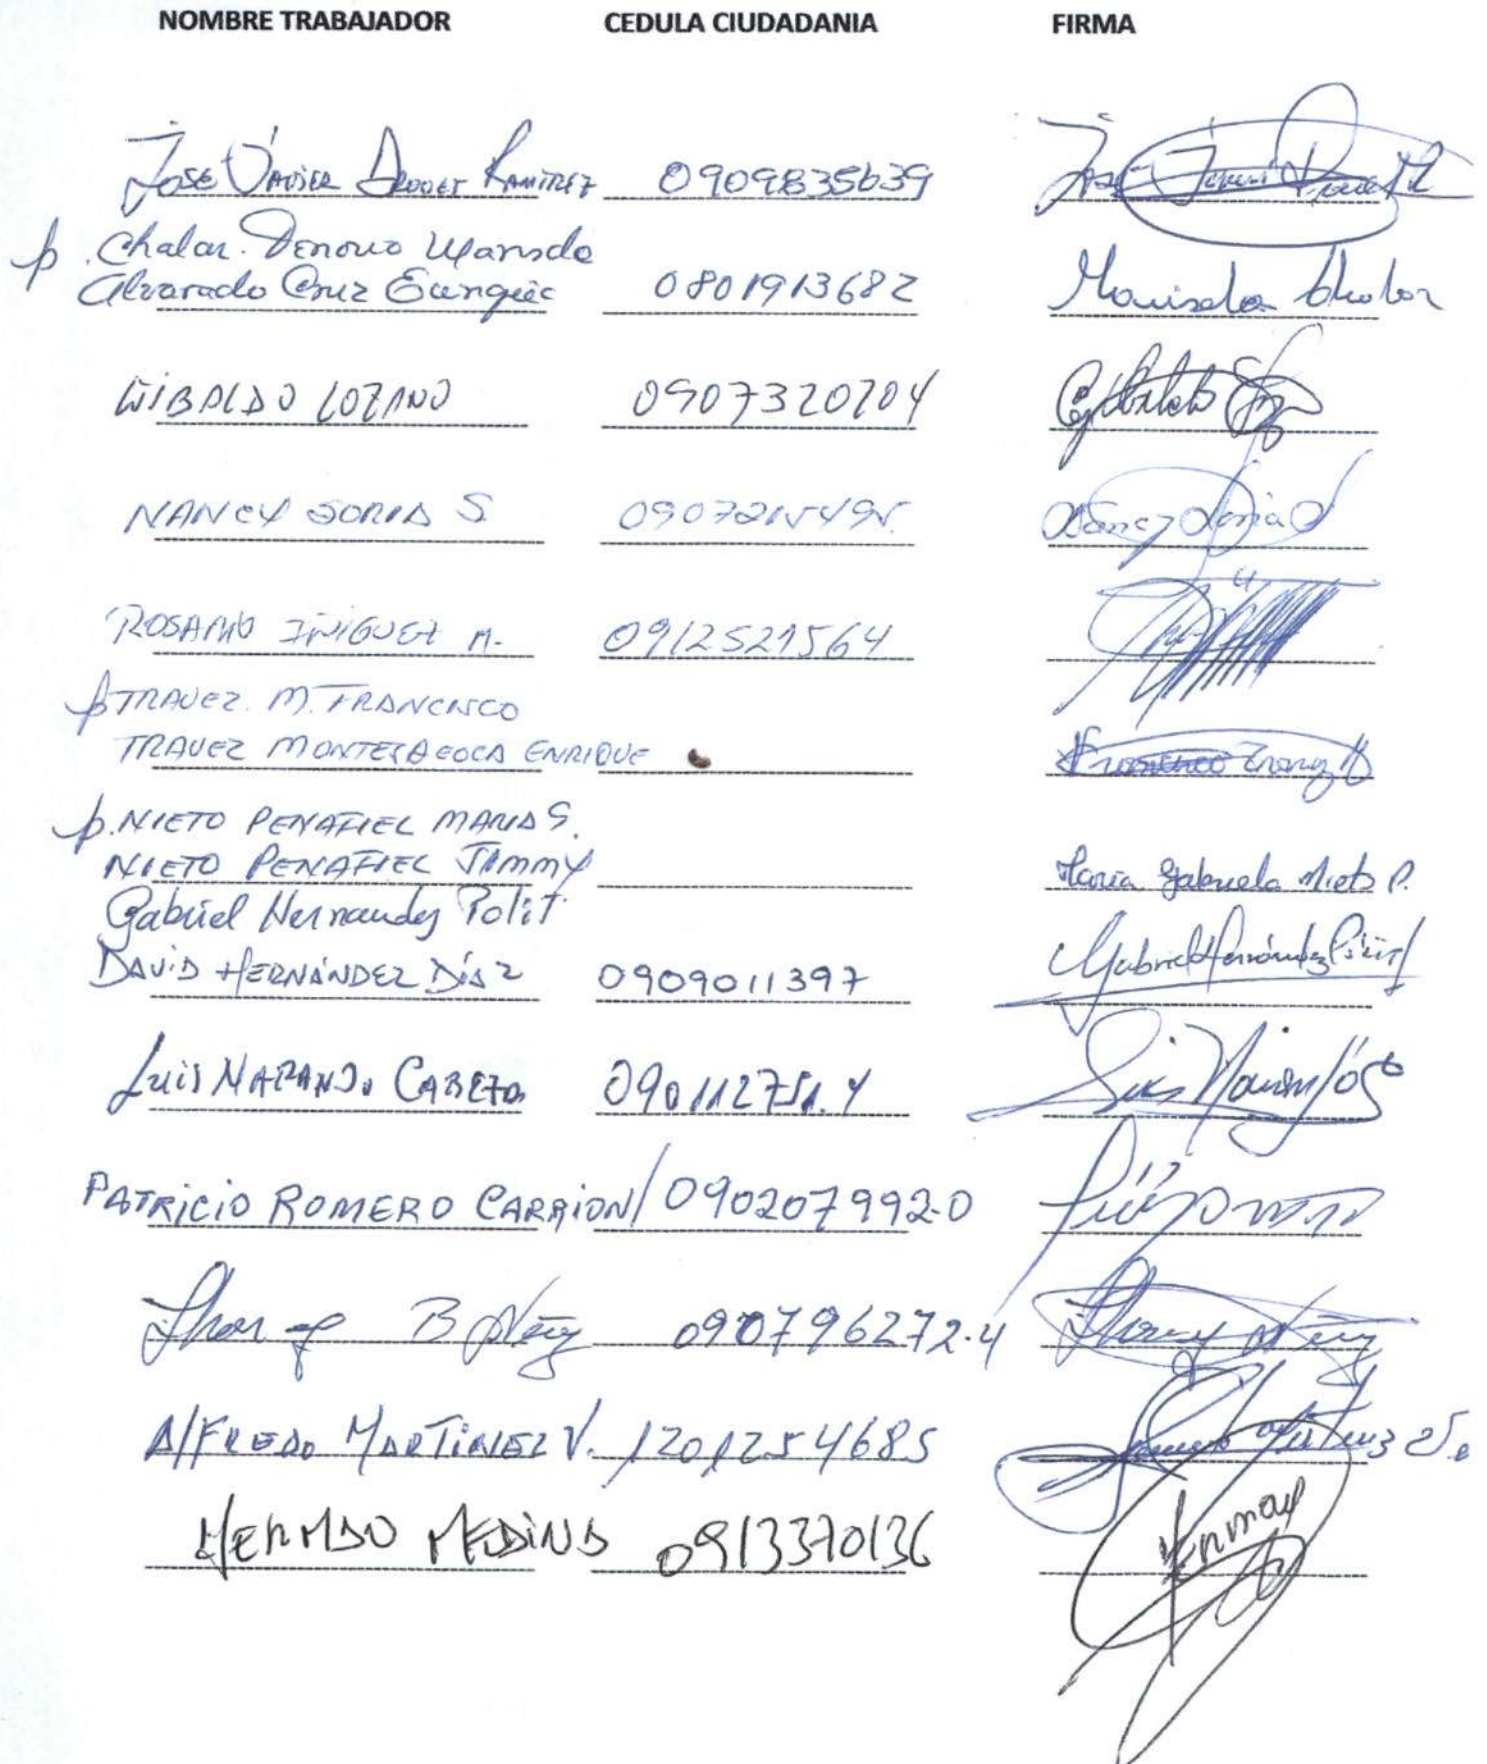 NOMBRE TRABAJADOR CEDULA CIUDADANIA FIRMA
José Javier Drouet Ramírez 0909835639 José Javier
p. Chalar Marisela
Alvarado Cruz 0801913682 Marisela Chalar
WIBALDO LOZANO 0907320204
NANCY SORIA S. 0907215495 Nancy Soria S
ROSARIO IÑIGUEZ M. 0912521564
p TRAVEZ. M. FRANCISCO
TRAVEZ ENRIQUE Francisco Travez M
p. NIETO PEÑAFIEL MARIA G.
NIETO PEÑAFIEL JIMMY Maria Gabriela Nieto P.
Gabriel Hernandez Polit
DAVID HERNÁNDEZ DÍAZ 0909011397 Gabriel Hernández
Luis NARANJO 090112751.4 Luis
PATRICIO ROMERO CARRION / 090207992-0
B 090796272-4
AlFREDO MARTINEZ V. 1201254685
MEDINA 0913370136